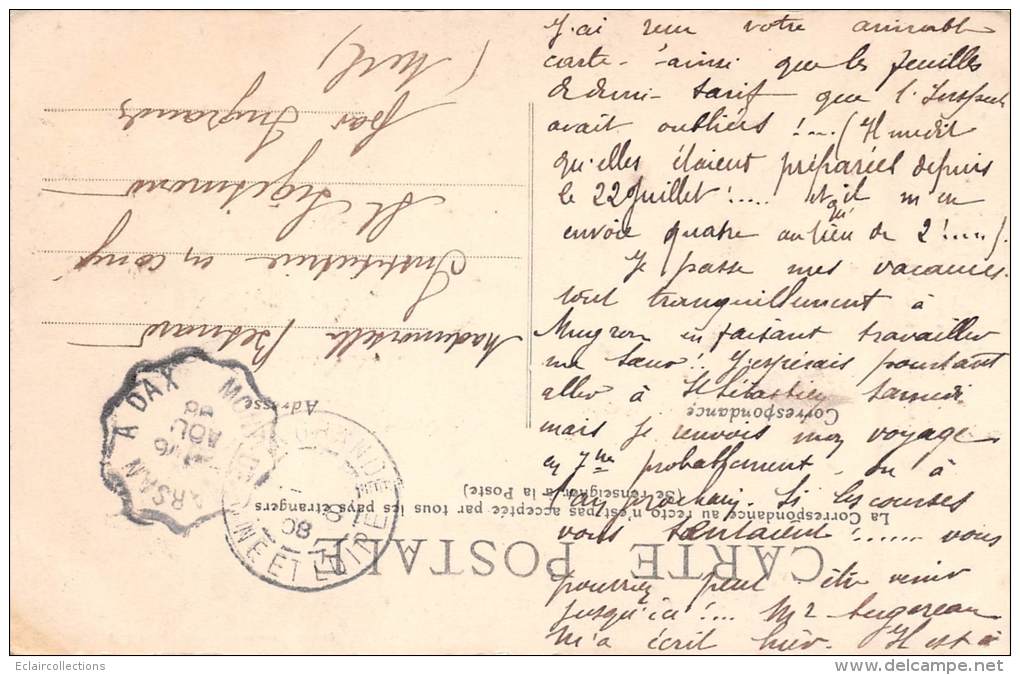 J'ai reçu votre aimable
carte - ainsi que les feuilles
de demi-tarif que l'Inspect
avait oubliées !... (Il me dit
qu'elles étaient préparées depuis
le 22 Juillet !..... et qu'il m'en
envoie quatre au lieu de 2 !....).
Je passe mes vacances
tout tranquillement à
Mugron en faisant travailler
ma sœur ! J'espérais pourtant
aller à St Sébastien samedi
mais je renvois mon voyage
en 7bre probablement - ou à
l'an prochain. Si les courses
vous tentaient !...... vous
pourriez peut être venir
jusqu'ici !... Mr Augereau
m'a écrit hier. Il est à
CARTE POSTALE
La Correspondance au recto n'est pas acceptée par tous les pays étrangers
(Se renseigner à la Poste)
Correspondance
Adresse
Mademoiselle Besnard
Institutrice en congé
St Sigismond
par Ingrandes
(M et L)
MONT-DE-MARSAN A DAX
16
AOU
08
INGRANDES
MAINE ET LOIRE
08
Eclaircollections
www.delcampe.net